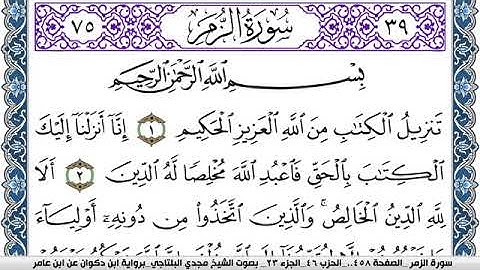 ٣٩ سُورَةُ الزُّمَرِ ٧٥
بِسْمِ اللَّهِ الرَّحْمَٰنِ الرَّحِيمِ
تَنزِيلُ الْكِتَابِ مِنَ اللَّهِ الْعَزِيزِ الْحَكِيمِ ١ إِنَّا أَنزَلْنَا إِلَيْكَ
الْكِتَابَ بِالْحَقِّ فَاعْبُدِ اللَّهَ مُخْلِصًا لَهُ الدِّينَ ٢ أَلَا
لِلَّهِ الدِّينُ الْخَالِصُ وَالَّذِينَ اتَّخَذُوا مِن دُونِهِ أَوْلِيَاءَ
سورة الزمر _الصفحة ٤٥٨.. الحزب ٤٦_ الجزء ٢٣_ بصوت الشيخ مجدي البلتاجي_برواية ابن ذكوان عن ابن عامر